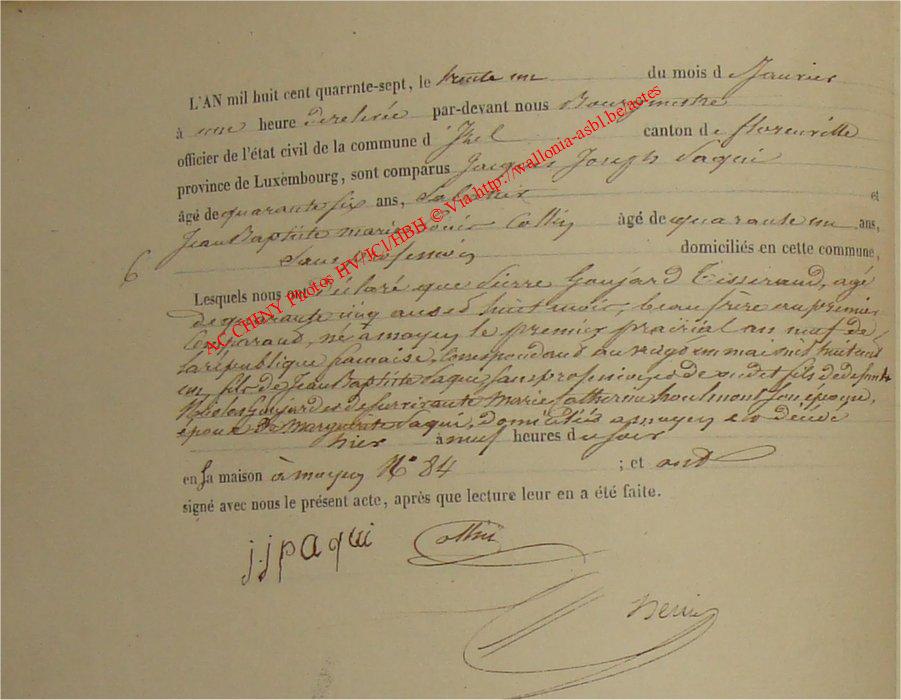 L'AN mil huit cent quarrnte-sept, le trente un du mois d e Janvier
à une heure de relevée par-devant nous Bourgmestre
officier de l'état civil de la commune d' Izel canton d e florenville
province de Luxembourg, sont comparus Jacques Joseph Paqui
âgé de quarante six ans, et
Jean Baptiste marie Collin âgé de quarante un ans,
6 Sans profession domiciliés en cette commune,
Lesquels nous ont déclaré que Pierre Goujard Tisserand, agé
de quarante cinq ans et huit mois, beau frere au premier
Comparant, né a moyen le premier prairial an neuf de
la république francaise, Correspondant au vingt un mai mil huit cent
un, fils de Jean Baptiste Paqui sans profession et fils de defunt
Nicolas Goujard et de survivante Marie Catherine houlmont son épouse,
époux de Marguerite Paqui, domiciliés a moyen est décédé
hier à neuf heures du soir
en sa maison à moyen N° 84 ; et ont
signé avec nous le présent acte, après que lecture leur en a été faite.
j.j paqui Collin
AC CHINY Photos HV/ICI/HBH © Via http://wallonia-asbl.be/actes